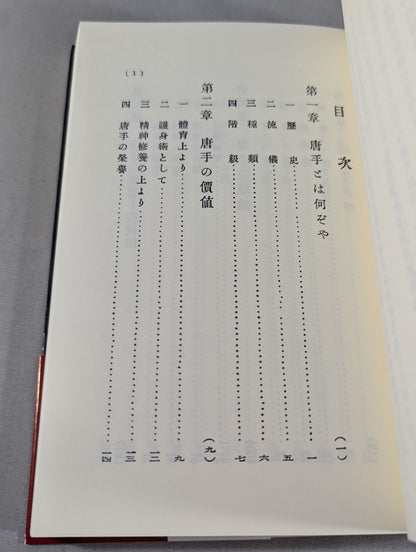 目次
第一章 唐手とは何ぞや……(一)
一 歷史……一
二 流儀……五
三 種類……六
四 階級……七
第二章 唐手の價値……(九)
一 體育上より……九
二 護身術として……一二
三 精神修養の上より……一三
四 唐手の榮譽……一四
(1)